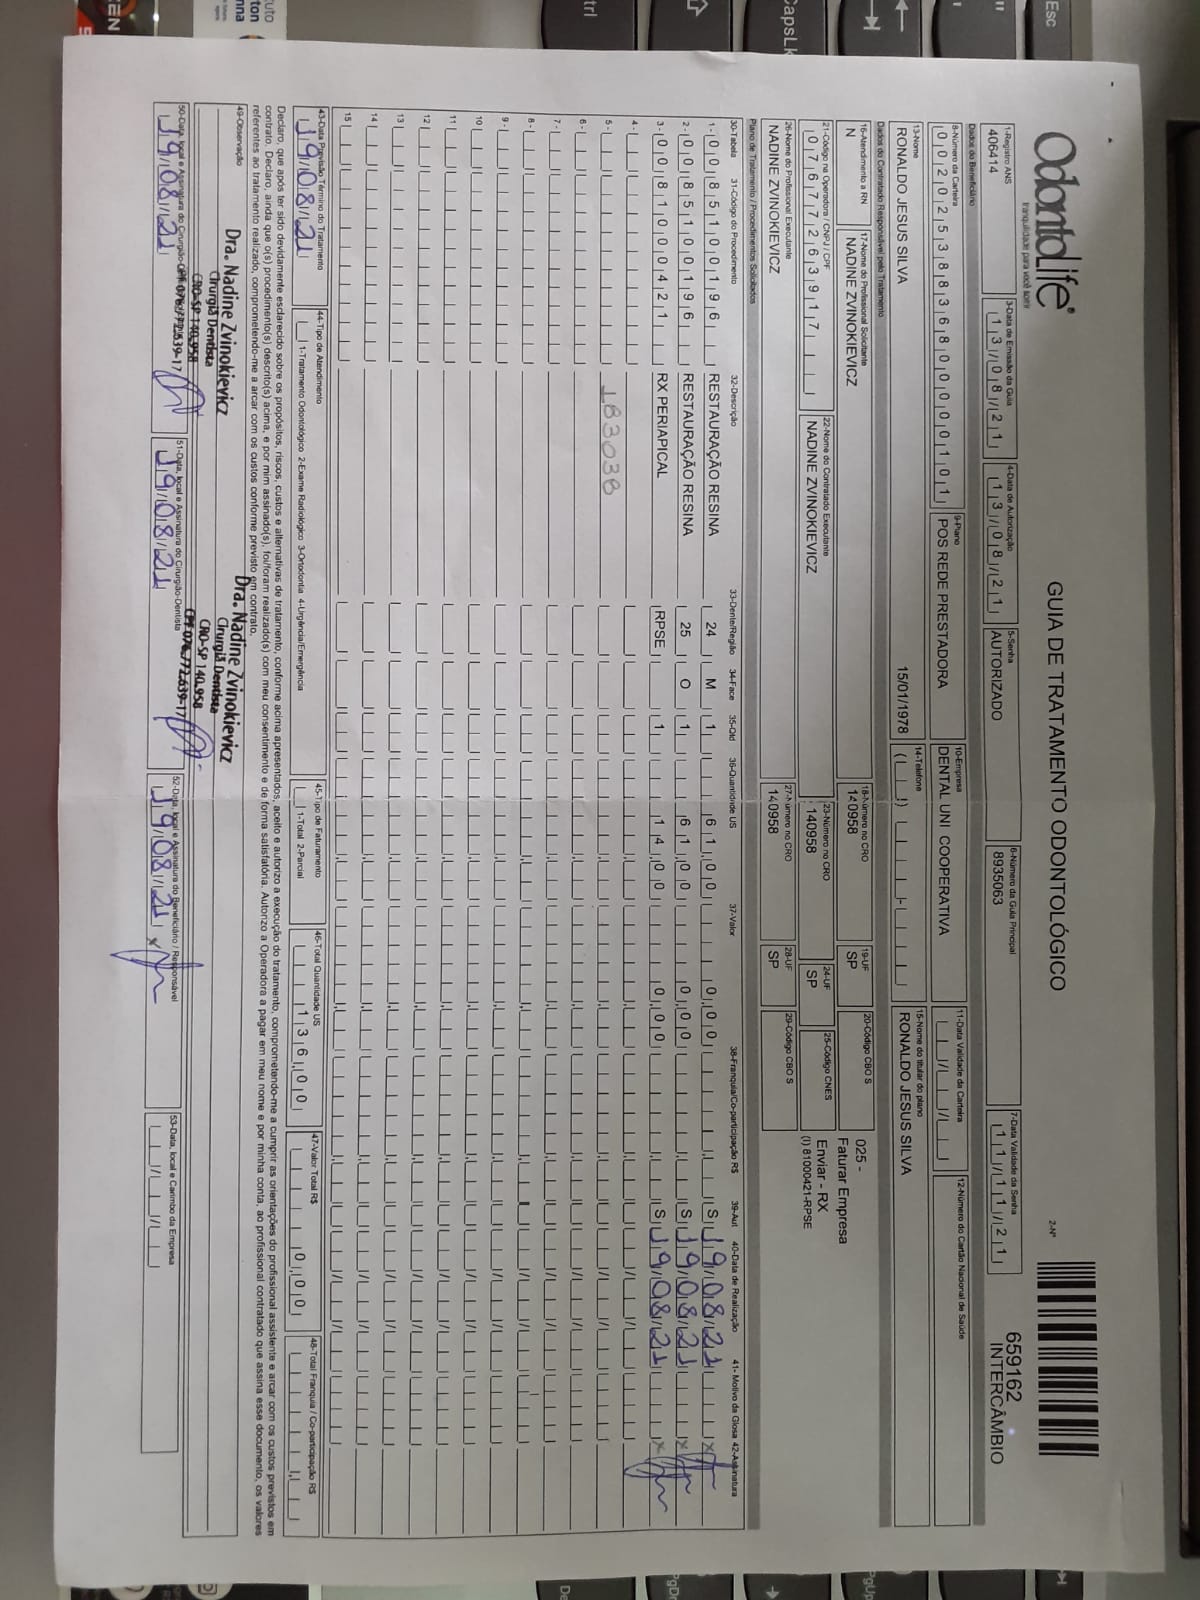 OdontoLife®
tranquilidade para você sorrir
GUIA DE TRATAMENTO ODONTOLÓGICO
2-Nº
659162
INTERCÂMBIO
1-Registro ANS
406414
3-Data de Emissão da Guia
13/08/21
4-Data de Autorização
13/08/21
5-Senha
AUTORIZADO
6-Número da Guia Principal
8935063
7-Data Validade da Senha
11/11/21
Dados do Beneficiário
8-Número da Carteira
00202538836800000101
9-Plano
POS REDE PRESTADORA
10-Empresa
DENTAL UNI COOPERATIVA
11-Data Validade da Carteira
12-Número do Cartão Nacional de Saúde
13-Nome
RONALDO JESUS SILVA
15/01/1978
14-Telefone
15-Nome do titular do plano
RONALDO JESUS SILVA
Dados do Contratado Responsável pelo Tratamento
16-Atendimento a RN
N
17-Nome do Profissional Solicitante
NADINE ZVINOKIEVICZ
18-Número no CRO
140958
19-UF
SP
20-Código CBO S
025 -
Faturar Empresa
21-Código na Operadora / CNPJ / CPF
07677263917
22-Nome do Contratado Executante
NADINE ZVINOKIEVICZ
23-Número no CRO
140958
24-UF
SP
25-Código CNES
Enviar - RX
(I) 81000421-RPSE
26-Nome do Profissional Executante
NADINE ZVINOKIEVICZ
27-Número no CRO
140958
28-UF
SP
29-Código CBO S
Plano de Tratamento / Procedimentos Solicitados
30-Tabela 31-Código do Procedimento 32-Descrição 33-Dente/Região 34-Face 35-Qtd 36-Quantidade US 37-Valor 38-Franquia/Co-participação R$ 39-Aut 40-Data de Realização 41- Motivo da Glosa 42-Assinatura
1 - 00 85100196 RESTAURAÇÃO RESINA 24 M 1 61,00 0,00 S 19/08/21 x
2 - 00 85100196 RESTAURAÇÃO RESINA 25 O 1 61,00 0,00 S 19/08/21 x
3 - 00 81000421 RX PERIAPICAL RPSE 1 14,00 0,00 S 19/08/21 x
4 -
5 - 183038
6 -
7 -
8 -
9 -
10
11
12
13
14
15
43-Data Previsão Término do Tratamento
19/08/21
44-Tipo de Atendimento
1-Tratamento Odontológico 2-Exame Radiológico 3-Ortodontia 4-Urgência/Emergência
45-Tipo de Faturamento
1-Total 2-Parcial
46-Total Quantidade US
136,00
47-Valor Total R$
0,00
48-Total Franquia / Co-participação R$
Declaro, que após ter sido devidamente esclarecido sobre os propósitos, riscos, custos e alternativas de tratamento, conforme acima apresentados, aceito e autorizo a execução do tratamento, comprometendo-me a cumprir as orientações do profissional assistente e arcar com os custos previstos em
contrato. Declaro, ainda que o(s) procedimento(s) descrito(s) acima, e por mim assinado(s), foi/foram realizado(s) com meu consentimento e de forma satisfatória. Autorizo a Operadora a pagar em meu nome e por minha conta, ao profissional contratado que assina esse documento, os valores
referentes ao tratamento realizado, comprometendo-me a arcar com os custos conforme previsto em contrato.
49-Observação
Dra. Nadine Zvinokievicz
Cirurgiã Dentista
CRO-SP 140.958
CPF 076.772.639-17
Dra. Nadine Zvinokievicz
Cirurgiã Dentista
CRO-SP 140.958
CPF 076.772.639-17
50-Data, local e Assinatura do Cirurgião-Dentista
19/08/21
51-Data, local e Assinatura do Cirurgião-Dentista
19/08/21
52-Data, local e Assinatura do Beneficiário / Responsável
19/08/21 x
53-Data, local e Carimbo da Empresa
Esc
CapsLk